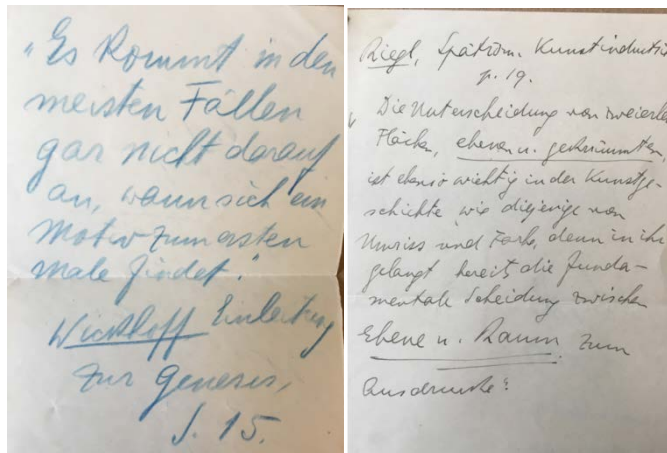 „Es kommt in den
meisten Fällen
gar nicht darauf
an, wann sich ein
Motiv zum ersten
Male findet."
Wickhoff Einleitung
zur Genesis,
S. 15.
Riegl, Spätröm. Kunstindustrie
p. 19.
„Die Unterscheidung von zweierlei
Flächen, ebenen u. gekrümmten,
ist ebenso wichtig in der Kunstge-
schichte wie diejenige von
Umriss und Farbe, denn in ihr
gelangt bereits die funda-
mentale Scheidung zwischen
Ebene u. Raum zum
Ausdrucke."